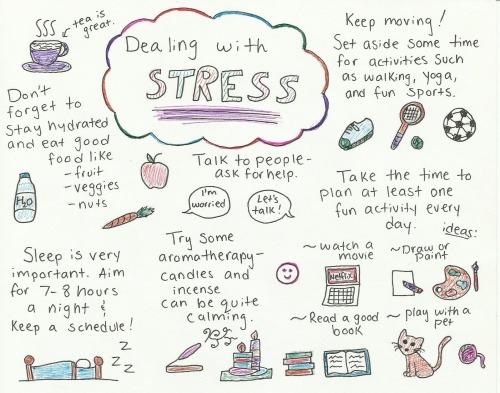 tea is
great.
Dealing with
STRESS
Keep moving!
Set aside some time
for activities such
as walking, yoga,
and fun sports.
Don't
forget to
stay hydrated
and eat good
food like
- fruit
- veggies
- nuts
H2O
Talk to people-
ask for help.
I'm
worried
Let's
talk!
Take the time to
plan at least one
fun activity every
day.
ideas:
~ watch a
movie
Netflix
~ Draw or
paint
~ Read a good
book
~ play with a
pet
Try some
aromatherapy-
candles and
incense
can be quite
calming.
Sleep is very
important. Aim
for 7-8 hours
a night &
keep a schedule!
Z
Z
Z